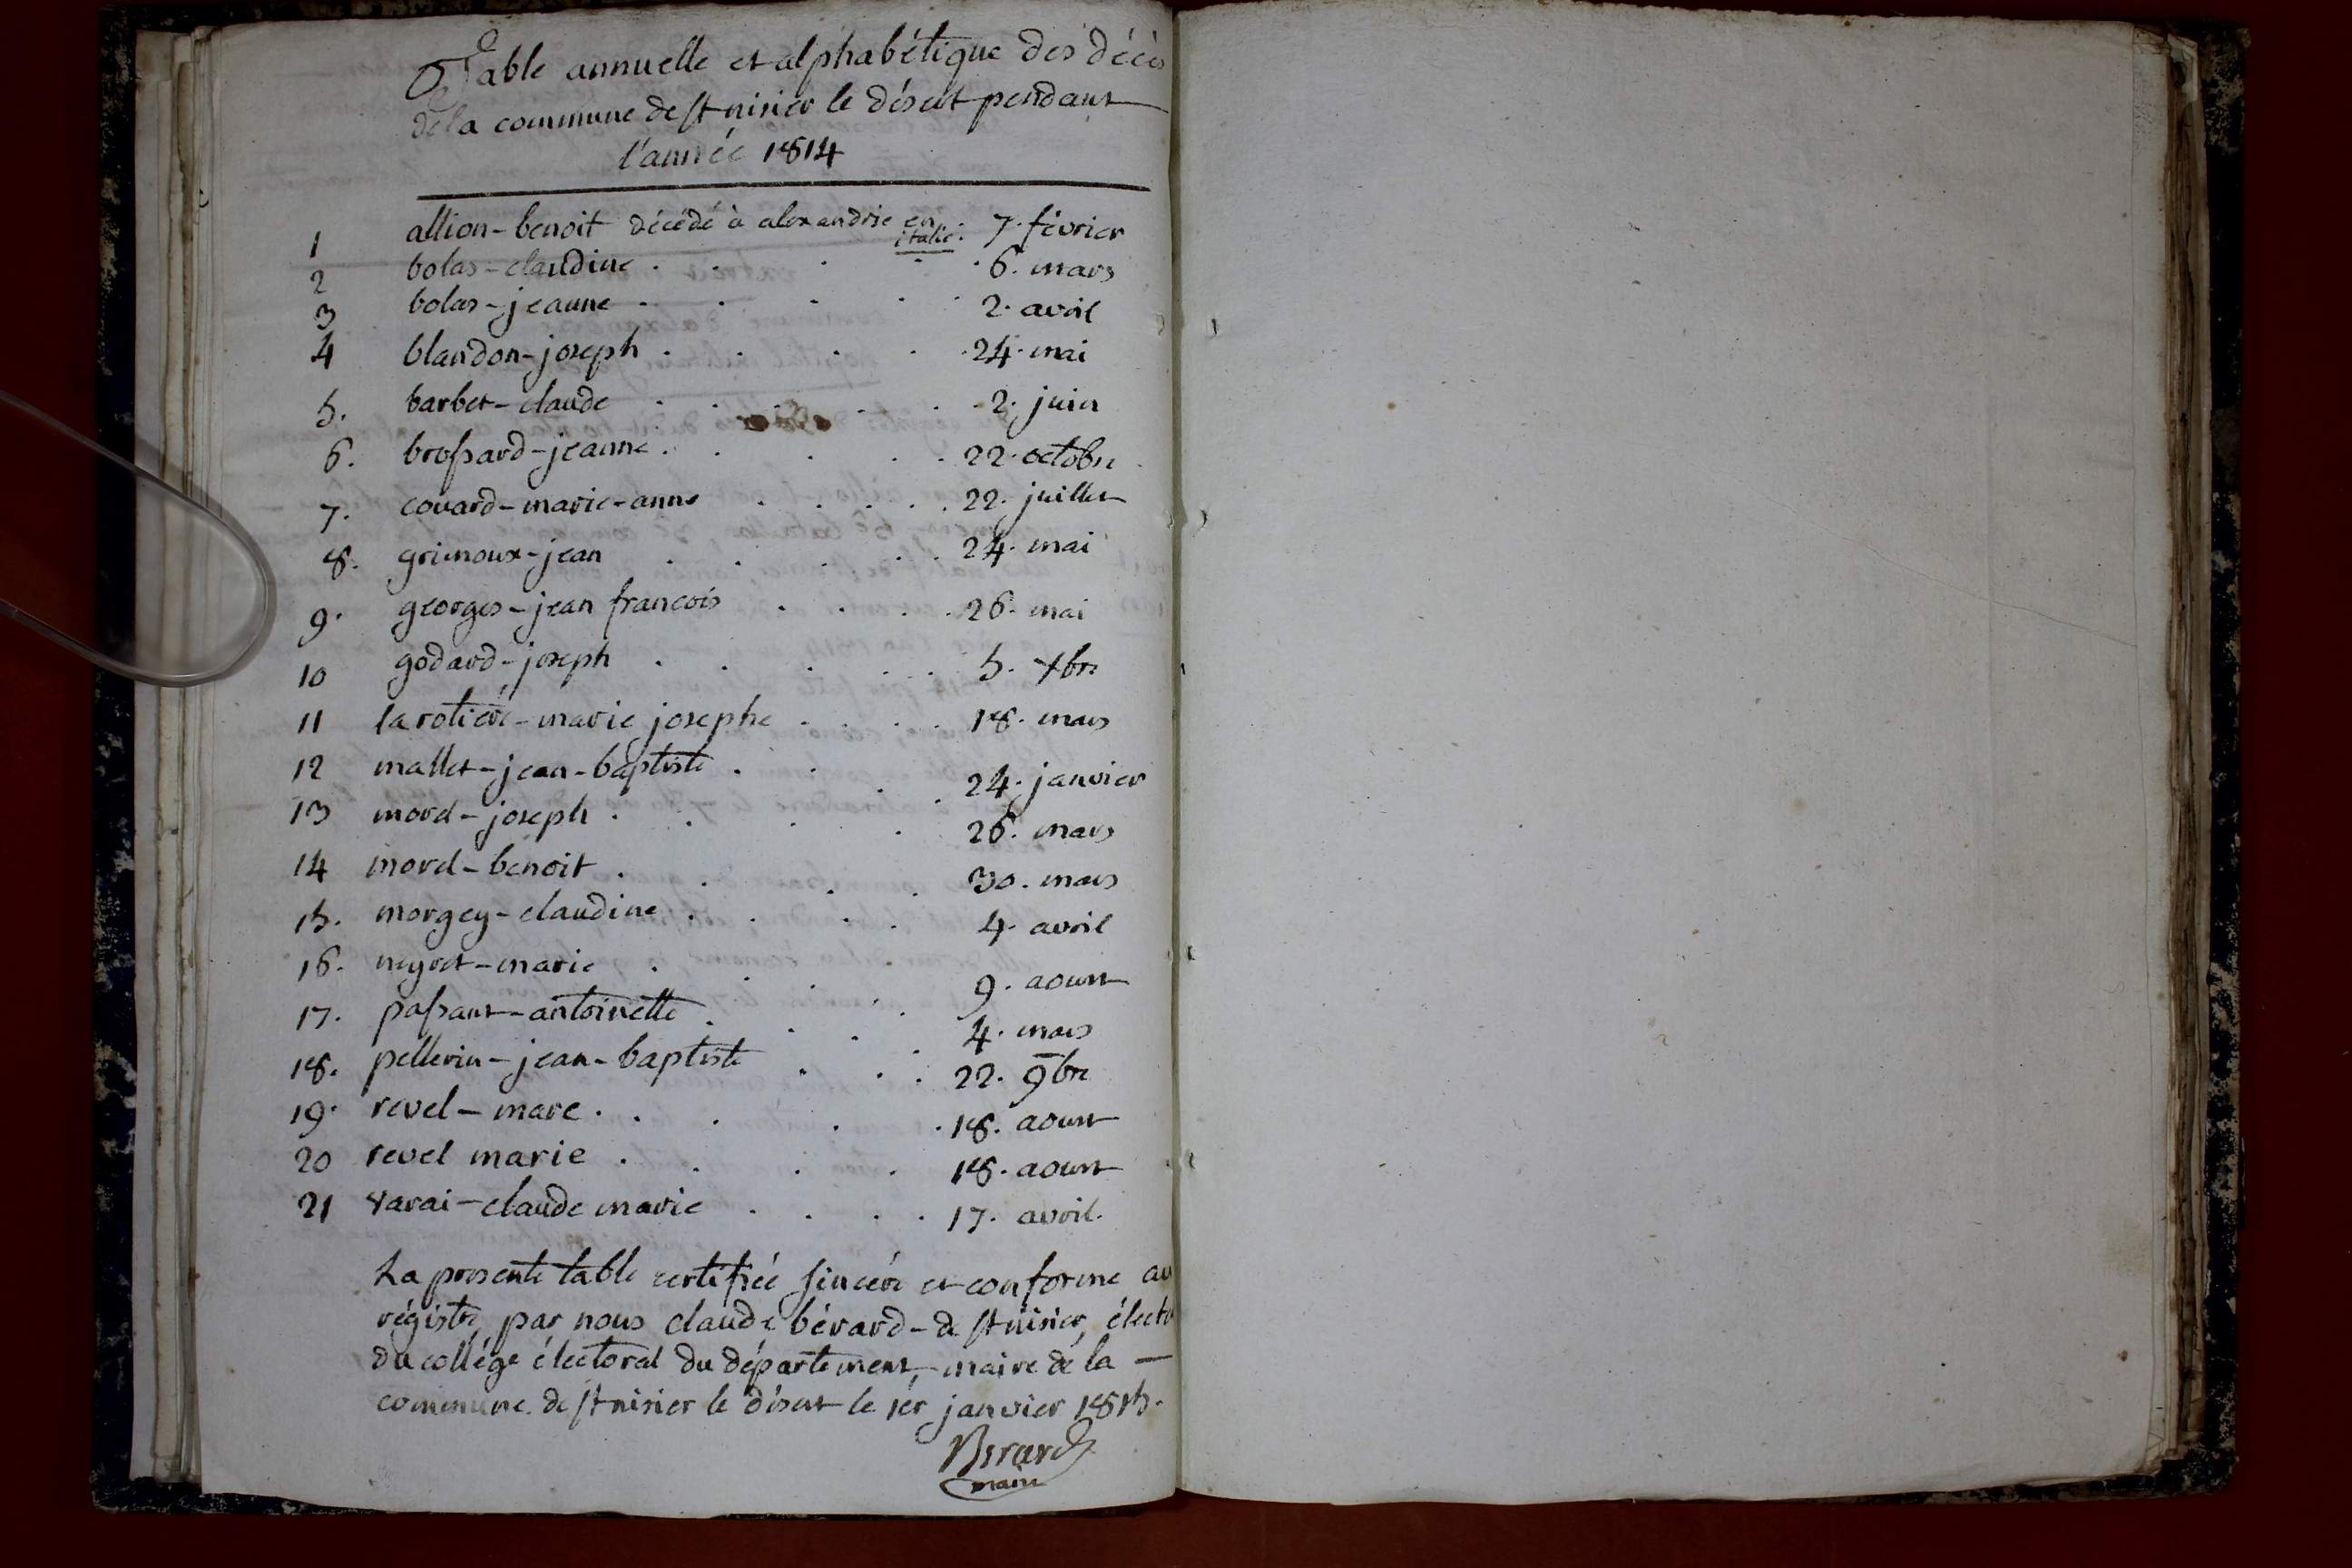 Table annuelle et alphabétique des décès
de la commune de st nisier le désert pendant
l'année 1814
1 allion-benoit décédé à alexandrie en italie. 7. février
2 bolas-claudine . . . . 6. mars
3 bolas-jeanne . . . . . 2. avril
4 blandon-joseph . . . . . 24. mai
5. barbet-claude . . . . . . 2. juin
6. brossard-jeanne . . . . . 22. octobre
7. couard-marie-anne . . . . . 22. juillet
8. grimoux-jean . . . . . 24. mai
9. georges-jean françois . . . . 26. mai
10 godard-joseph . . . . . 5. xbre
11 la rotière-marie josephe . . . . 18. mars
12 mallet-jean-baptiste . . . . 24. janvier
13 morel-joseph . . . . 26. mars
14 morel-benoit . . . . 30. mars
15. morgey-claudine . . . . 4. avril
16. neyret-marie . . . . 9. aoust
17. passant-antoinette . . . . 4. mars
18. pellerin-jean-baptiste . . . 22. 9bre
19. revel-marc . . . . . 18. aoust
20 revel marie . . . . 18. aoust
21 varai-claude marie . . . . 17. avril.
La presente table certifiée sincére et conforme au
régistre, par nous claude bérard-de st nisier,
du collége électoral du département, maire de la
commune de st nisier le désert le 1er janvier 1815.
Berard
maire